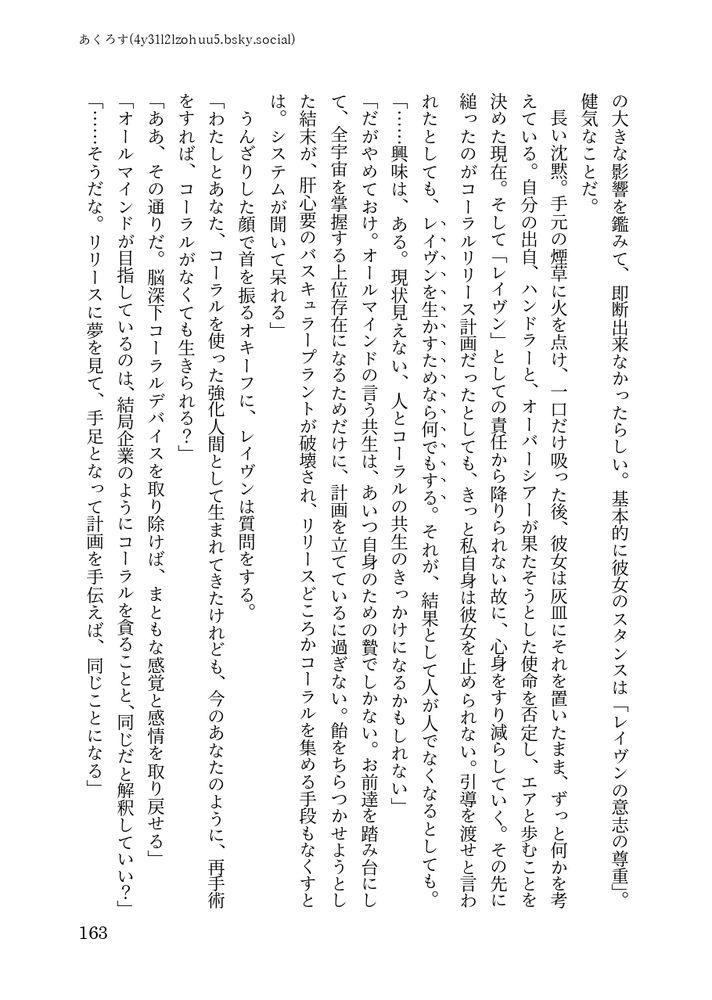 あくろす(4y31l2lzohuu5.bsky.social)
の大きな影響を鑑みて、即断出来なかったらしい。基本的に彼女のスタンスは「レイヴンの意志の尊重」。
健気なことだ。
　長い沈黙。手元の煙草に火を点け、一口だけ吸った後、彼女は灰皿にそれを置いたまま、ずっと何かを考
えている。自分の出自、ハンドラーと、オーバーシアーが果たそうとした使命を否定し、エアと歩むことを
決めた現在。そして「レイヴン」としての責任から降りられない故に、心身をすり減らしていく。その先に
縋ったのがコーラルリリース計画だったとしても、きっと私自身は彼女を止められない。引導を渡せと言わ
れたとしても、レイヴンを生かすためなら何でもする。それが、結果として人が人でなくなるとしても。
「……興味は、ある。現状見えない、人とコーラルの共生のきっかけになるかもしれない」
「だがやめておけ。オールマインドの言う共生は、あいつ自身のための贄でしかない。お前達を踏み台にし
て、全宇宙を掌握する上位存在になるためだけに、計画を立てているに過ぎない。飴をちらつかせようとし
た結末が、肝心要のバスキュラープラントが破壊され、リリースどころかコーラルを集める手段もなくすと
は。システムが聞いて呆れる」
　うんざりした顔で首を振るオキーフに、レイヴンは質問をする。
「わたしとあなた、コーラルを使った強化人間として生まれてきたけれども、今のあなたのように、再手術
をすれば、コーラルがなくても生きられる？」
「ああ、その通りだ。脳深下コーラルデバイスを取り除けば、まともな感覚と感情を取り戻せる」
「オールマインドが目指しているのは、結局企業のようにコーラルを貪ることと、同じだと解釈していい？」
「……そうだな。リリースに夢を見て、手足となって計画を手伝えば、同じことになる」
163